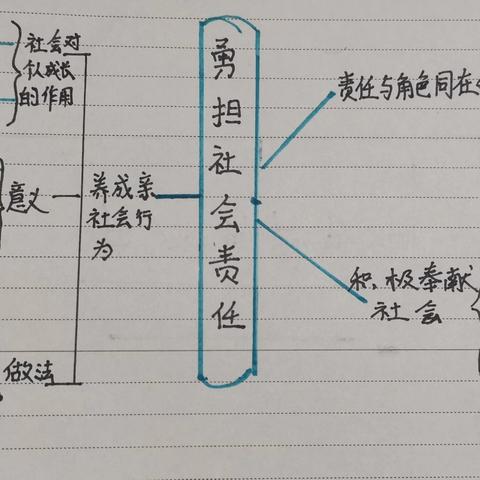 社会对
个人成长
的作用
意义
做法
养成亲
社会行
为
勇担社会责任
责任与角色同在
积极奉献
社会